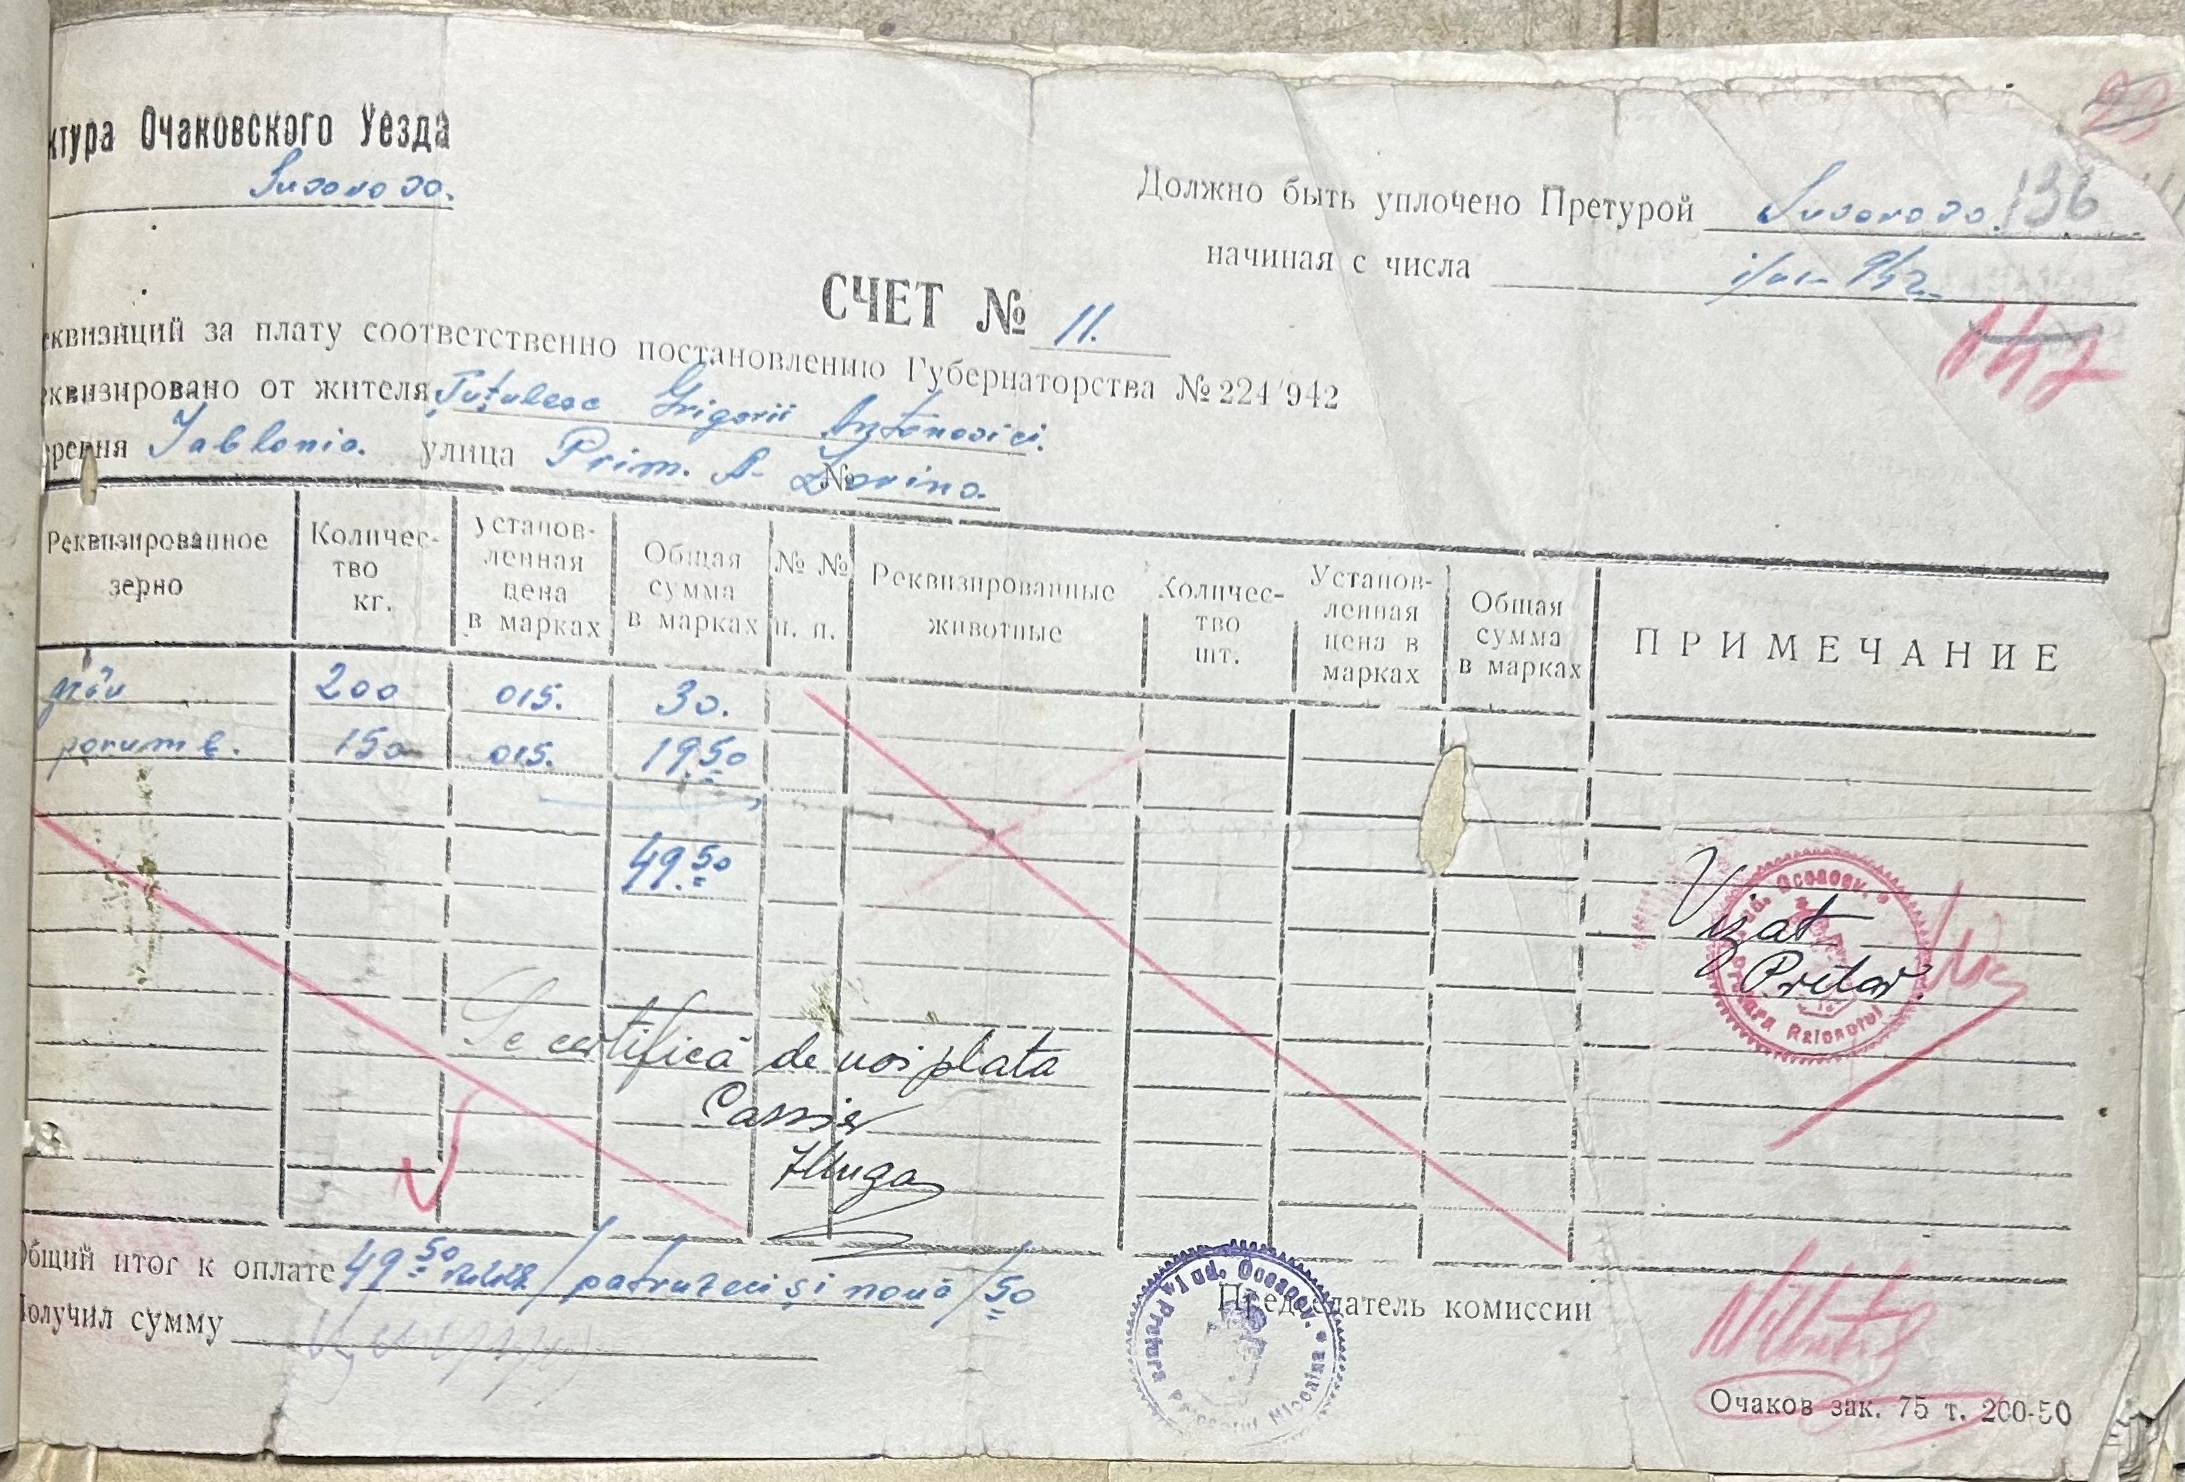 ктура Очаковского Уезда
Suvorovo.
23
136
Должно быть уплочено Претурой Suvorovo.
начиная с числа
СЧЕТ № 11.
147
еквизиций за плату соответственно постановлению Губернаторства № 224/942
еквизировано от жителя Țuțuleac Grigorii Antonovici.
еревня Iablonia. улица Prim. A- Zorina. №
Реквизированное зерно Количес-тво кг. установ-ленная цена в марках Общая сумма в марках № № п. п. Реквизированные животные Количес-тво шт. Установ-ленная цена в марках Общая сумма в марках ПРИМЕЧАНИЕ
grâu 200 015. 30.
porumb. 150 015. 19.50
49.50
Vizat
Pretor.
Se certifică de noi plata
Cassier
Общий итог к оплате 49.50 / patruzeci și nouă /50
Получил сумму
Председатель комиссии
Jud. Oceacov.
Pretura Raionului
Очаков зак. 75 т. 200-50